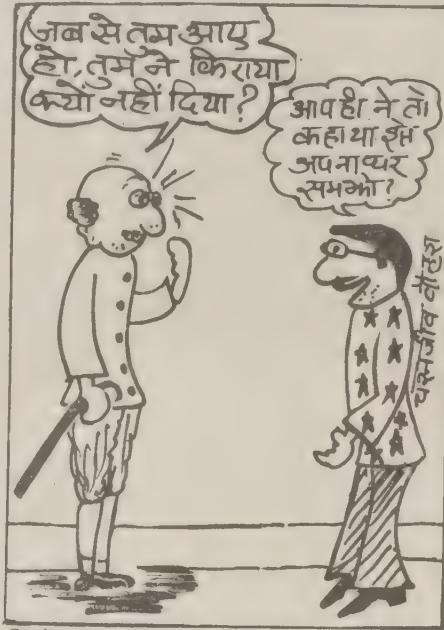 जब से तुम आए
हो, तुम ने किराया
क्यों नहीं दिया?
आप ही ने तो
कहा था इसे
अपना घर
समझो?